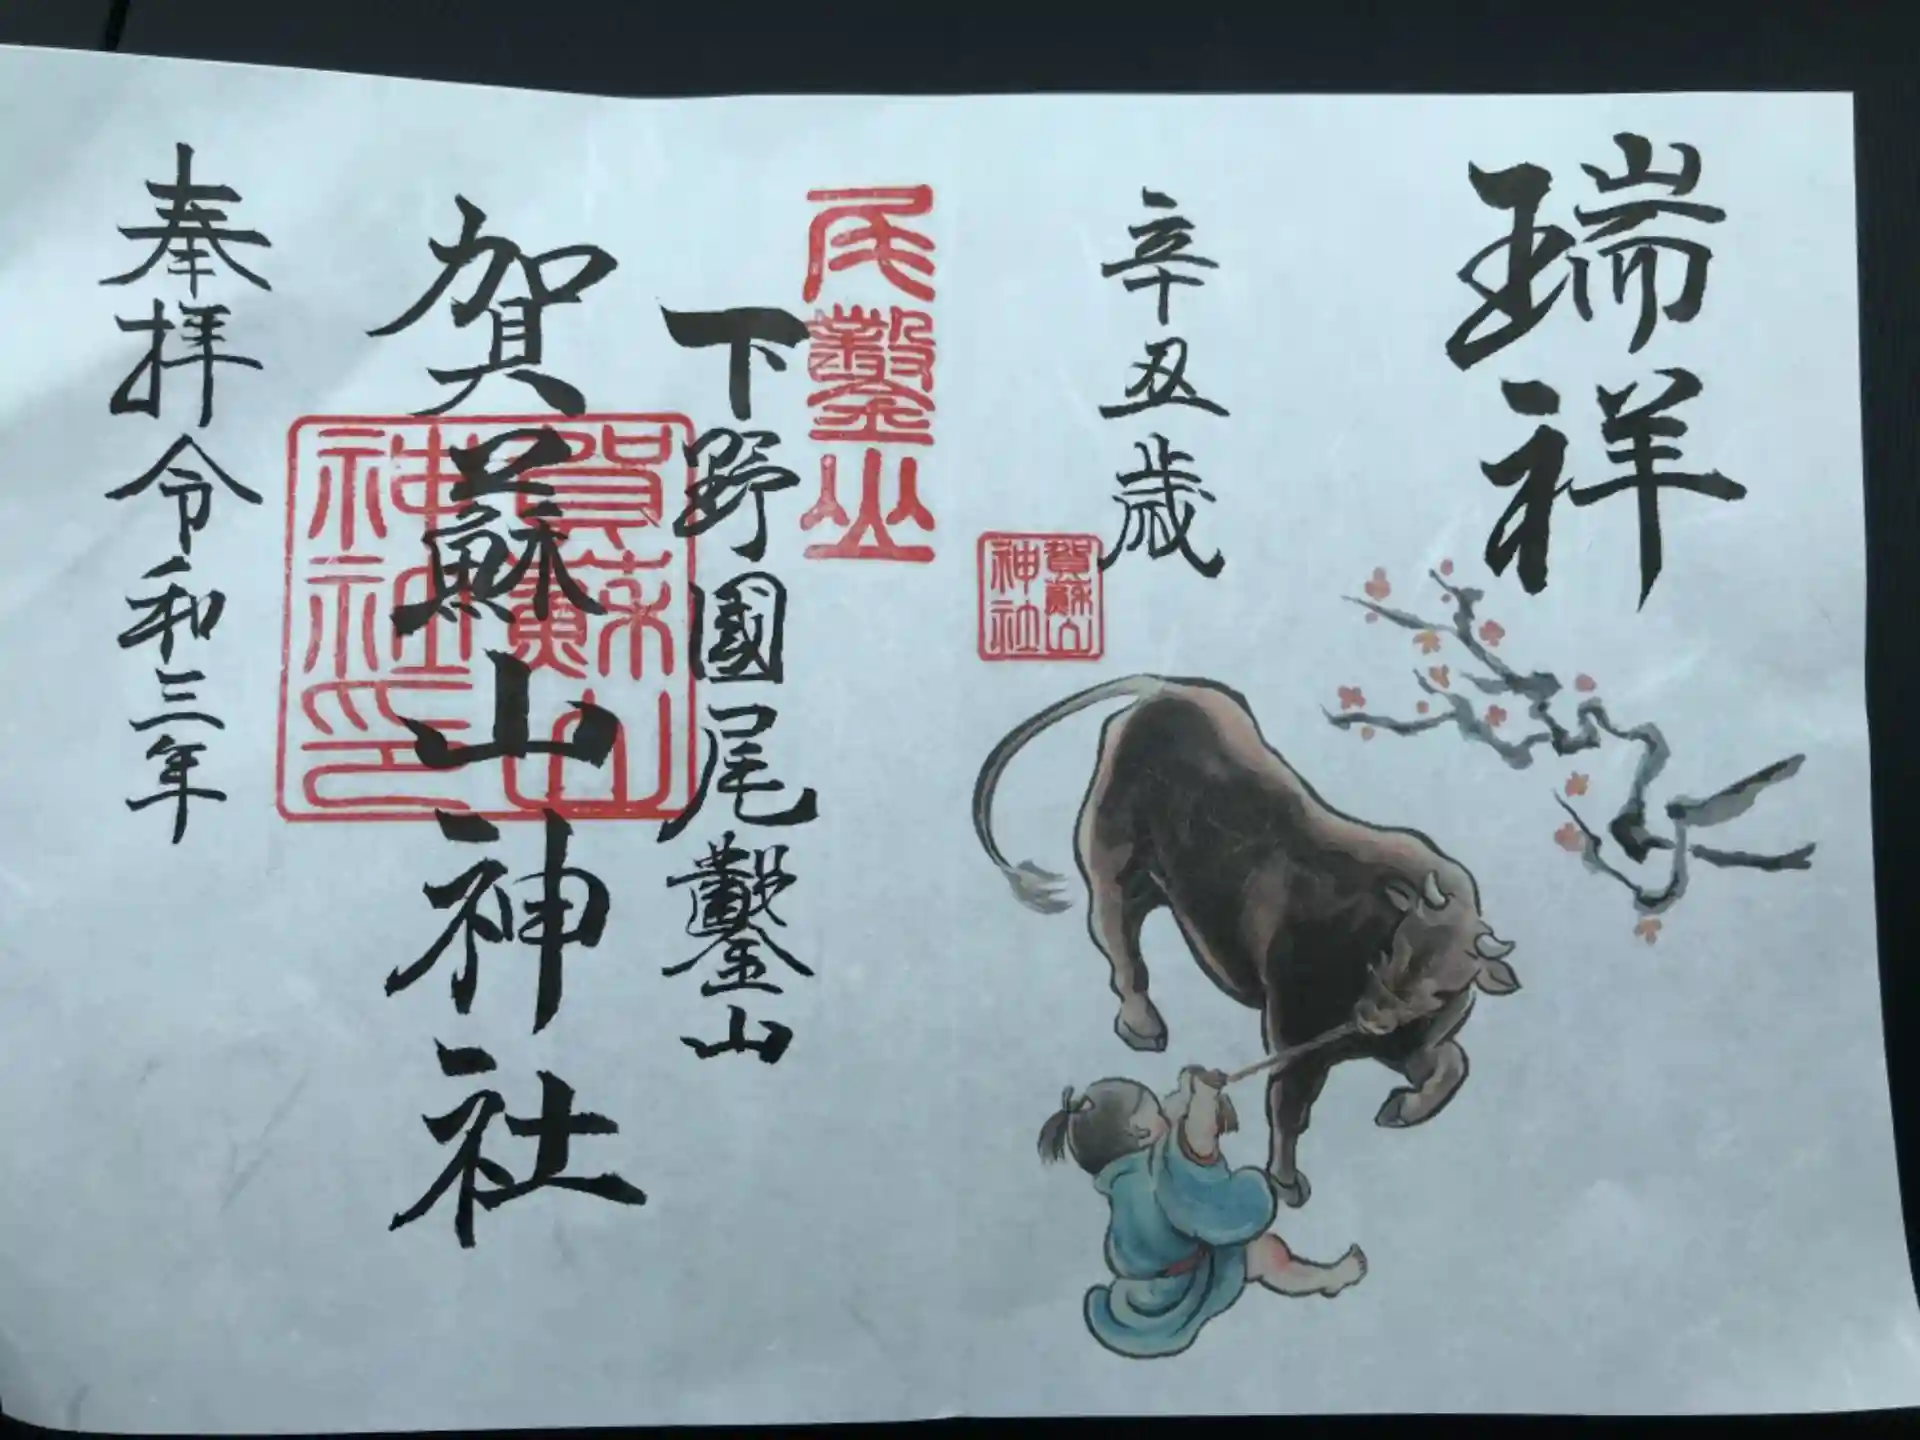 瑞祥
辛丑歳
賀蘇山神社
尾鑿山
下野國尾鑿山
賀蘇山神社
賀蘇山神社印
奉拝令和三年